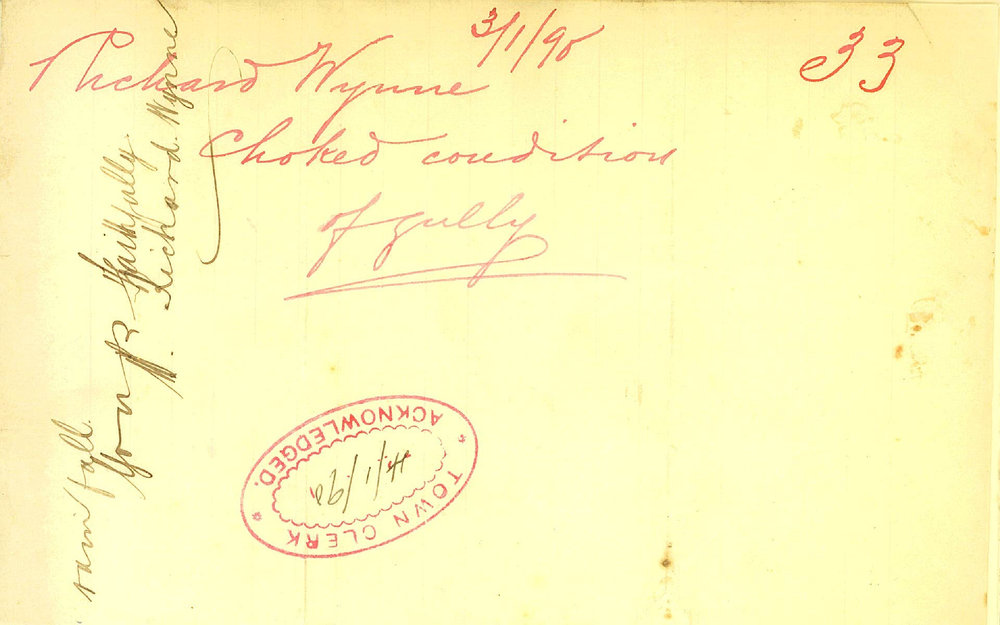 3/1/90
33
Richard Wynne
Choked condition
of gully
rain fall.
Yours Faithfully
Richard. Wynne
TOWN CLERK
ACKNOWLEDGED.
4/1/90